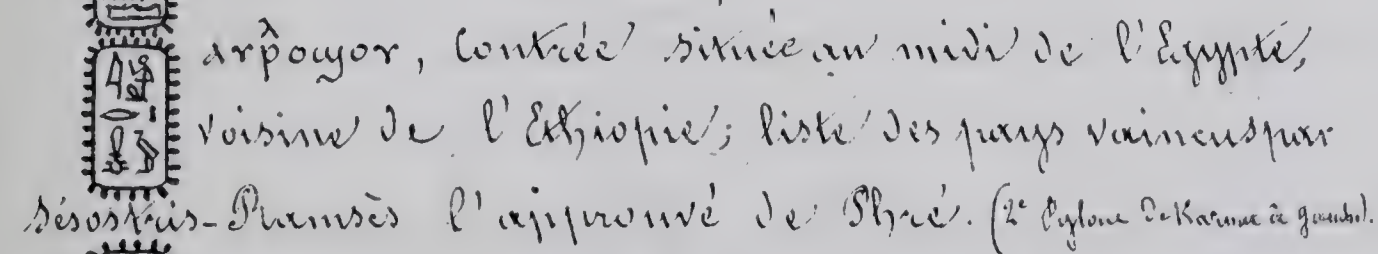 contrée située au midi de l'Egypte,
voisine de l'Ethiopie; liste des pays vaincus par
Sésostris-Ramsès l'approuvé de Phré. (2e Pylone de Karnac à gauche).